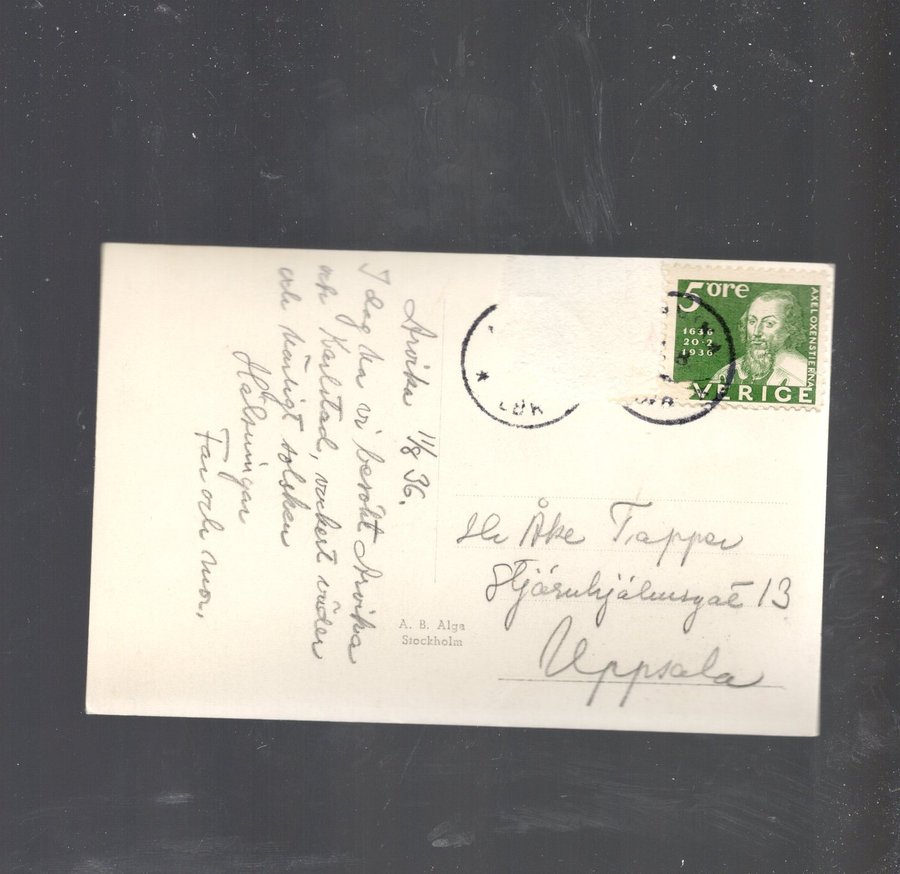 Arvika 11/8 36.
I dag ha vi besökt Arvika
och Karlstad, vackert väder
och härligt solsken
Hälsningar
Far och mor.
5 öre
1636
20-2
1936
AXEL OXENSTIERNA
SVERIGE
LBK
Hr Åke Tapper
Stjärnhjälmsgat 13
Uppsala
A. B. Alga
Stockholm